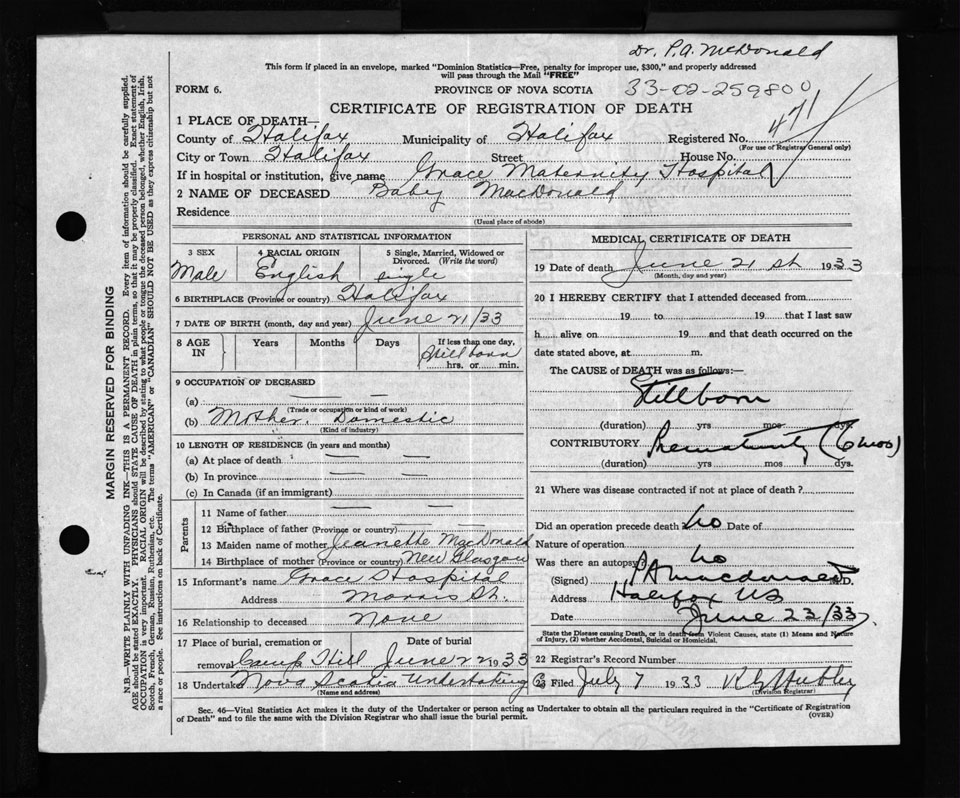 Dr. P.A. McDonald
This form if placed in an envelope, marked "Dominion Statistics—Free, penalty for improper use, $300," and properly addressed
will pass through the Mail "FREE"
FORM 6.
PROVINCE OF NOVA SCOTIA
33-02-259800
CERTIFICATE OF REGISTRATION OF DEATH
471
1 PLACE OF DEATH—
County of Halifax Municipality of Halifax Registered No.
(For use of Registrar General only)
City or Town Halifax Street House No.
If in hospital or institution, give name Grace Maternity Hospital
2 NAME OF DECEASED Baby MacDonald
Residence
(Usual place of abode)
PERSONAL AND STATISTICAL INFORMATION
3 SEX 4 RACIAL ORIGIN 5 Single, Married, Widowed or
Divorced. (Write the word)
Male English single
6 BIRTHPLACE (Province or country) Halifax
7 DATE OF BIRTH (month, day and year) June 21/33
8 AGE IN Years Months Days If less than one day,
Stillborn
hrs. or min.
9 OCCUPATION OF DECEASED
(a) — —
(Trade or occupation or kind of work)
(b) Mother. Domestic
(Kind of industry)
10 LENGTH OF RESIDENCE (in years and months)
(a) At place of death — —
(b) In province — —
(c) In Canada (if an immigrant)
Parents
11 Name of father — —
12 Birthplace of father (Province or country) — —
13 Maiden name of mother Jeanette MacDonald
14 Birthplace of mother (Province or country) New Glasgow
15 Informant's name Grace Hospital
Address Morris St.
16 Relationship to deceased None
17 Place of burial, cremation or Date of burial
removal Camp Hill June 22 1933
18 Undertaker Nova Scotia Undertaking Co
(Name and address)
MEDICAL CERTIFICATE OF DEATH
19 Date of death June 21st 1933
(Month, day and year)
20 I HEREBY CERTIFY that I attended deceased from
19 to 19 that I last saw
h alive on 19 and that death occurred on the
date stated above, at m.
The CAUSE of DEATH was as follows:—
Stillborn
(duration) yrs mos dys.
CONTRIBUTORY Prematurity (6 mos)
(duration) yrs mos dys.
21 Where was disease contracted if not at place of death?
Did an operation precede death? no Date of
Nature of operation
Was there an autopsy? no
(Signed) P A Macdonald M.D.
Address Halifax NS
Date June 23/33.
State the Disease causing Death, or in death from Violent Causes, state (1) Means and Nature
of Injury, (2) whether Accidental, Suicidal or Homicidal.
22 Registrar's Record Number
23 Filed July 7 1933
(Division Registrar)
Sec. 46—Vital Statistics Act makes it the duty of the Undertaker or person acting as Undertaker to obtain all the particulars required in the "Certificate of Registration
of Death" and to file the same with the Division Registrar who shall issue the burial permit. (OVER)
MARGIN RESERVED FOR BINDING
N.B.—WRITE PLAINLY WITH UNFADING INK—THIS IS A PERMANENT RECORD. Every item of information should be carefully supplied.
AGE should be stated EXACTLY. PHYSICIANS should STATE CAUSE OF DEATH in plain terms, so that it may be properly classified. Exact statement of
OCCUPATION is very important. RACIAL ORIGIN will be described by stating to what people or tongue the deceased person belonged, whether English, Irish,
Scotch, French, German, Russian, Ruthenian, etc. The terms "AMERICAN" or "CANADIAN" SHOULD NOT BE USED as they express citizenship but not
a race or people. See instructions on back of Certificate.